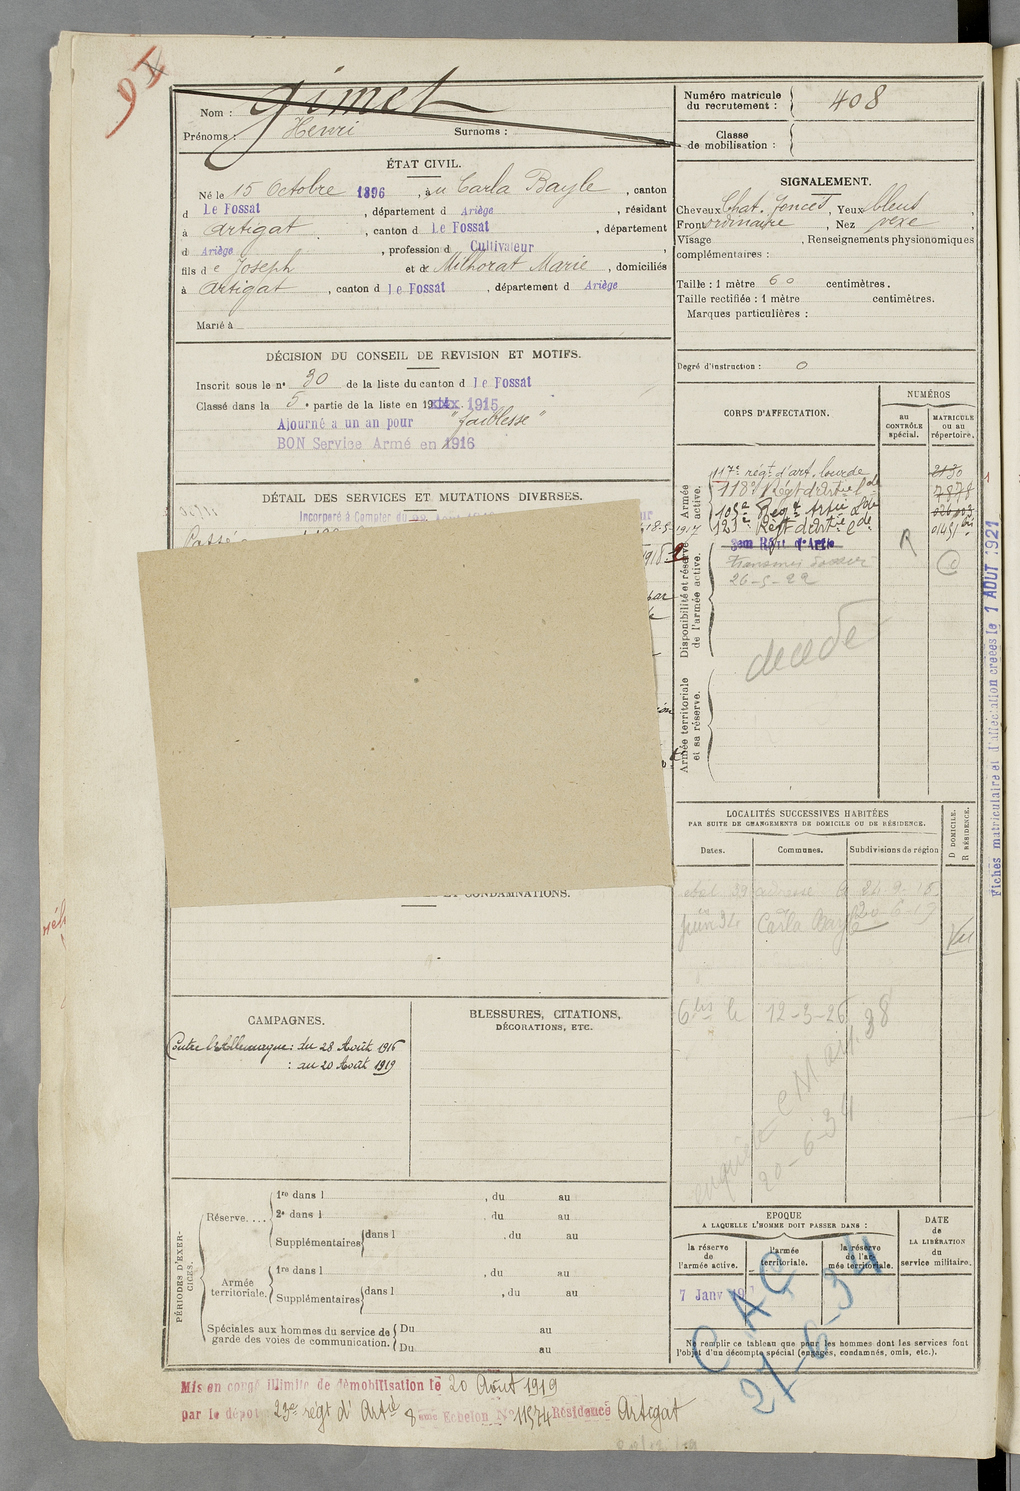 Nom : Gimet
Prénoms : Henri Surnoms :
Numéro matricule du recrutement : 408
Classe de mobilisation :
ÉTAT CIVIL.
Né le 15 Octobre 1896, à u Carla Bayle, canton
d Le Fossat, département d Ariège, résidant
à Artigat, canton d Le Fossat, département
d Ariège, profession d Cultivateur,
fils de Joseph et de Milhorat Marie, domiciliés
à Artigat, canton d Le Fossat, département d Ariège
Marié à
SIGNALEMENT.
Cheveux Chat. foncés, Yeux bleus,
Front ordinaire, Nez vexe,
Visage , Renseignements physionomiques
complémentaires :
Taille : 1 mètre 60 centimètres.
Taille rectifiée : 1 mètre centimètres.
Marques particulières :
Degré d'instruction : 0
DÉCISION DU CONSEIL DE REVISION ET MOTIFS.
Inscrit sous le n° 30 de la liste du canton d Le Fossat
Classé dans la 5e partie de la liste en 19 1915
Ajourné a un an pour "faiblesse"
BON Service Armé en 1916
CORPS D'AFFECTATION.
NUMÉROS
au CONTRÔLE spécial.
MATRICULE ou au répertoire.
Armée active.
117e régt d'art. lourde 2130
118e Régt d'Artie lde 7878
105e Régt Artie lde
121e Régt d'Artie lde 01451 bis
Disponibilité et réserve de l'armée active.
R
26-5-22
décédé
Armée territoriale et sa réserve.
DÉTAIL DES SERVICES ET MUTATIONS DIVERSES.
Incorporé à Compter du
18-5-1917
par
ET CONDAMNATIONS.
LOCALITÉS SUCCESSIVES HABITÉES
PAR SUITE DE CHANGEMENTS DE DOMICILE OU DE RÉSIDENCE.
Dates. Communes. Subdivisions de région
D DOMICILE. R RÉSIDENCE.
juin 34 Carla Bayle 20-6-19
Vu
12-3-26
20-6-34
Fiches matriculaire et d'affectation créées le 1 AOUT 1921
CAMPAGNES.
Contre l'Allemagne : du 28 Août 1916
: au 20 Août 1919
BLESSURES, CITATIONS,
DÉCORATIONS, ETC.
PÉRIODES D'EXERCICES.
Réserve....
1re dans l , du au
2e dans l , du au
Supplémentaires dans l , du au
Armée territoriale.
1re dans l , du au
Supplémentaires dans l , du au
Spéciales aux hommes du service de garde des voies de communication.
Du au
Du au
EPOQUE
A LAQUELLE L'HOMME DOIT PASSER DANS :
la réserve de l'armée active.
l'armée territoriale.
la réserve de l'armée territoriale.
DATE de LA LIBÉRATION du service militaire.
7 Janv
CAC
27-6-34
Ne remplir ce tableau que pour les hommes dont les services font
l'objet d'un décompte spécial (engagés, condamnés, omis, etc.).
Mis en congé illimité de démobilisation le 20 Août 1919
par le dépôt 23e régt d'Artie 8eme Echelon N° 11574 Résidence Artigat